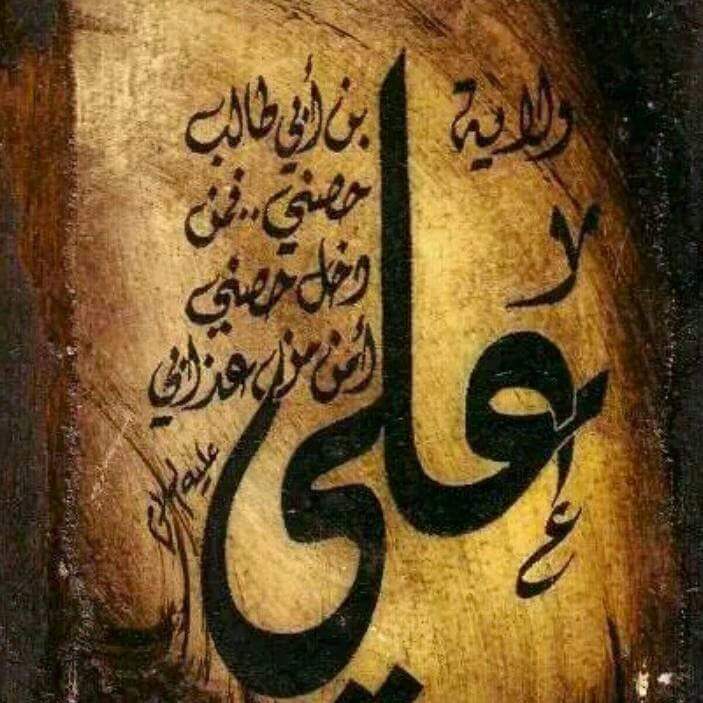 ولاية
علي
بن أبي طالب
حصني .. فمن
دخل حصني
أمن من عذابي
عليه السلام